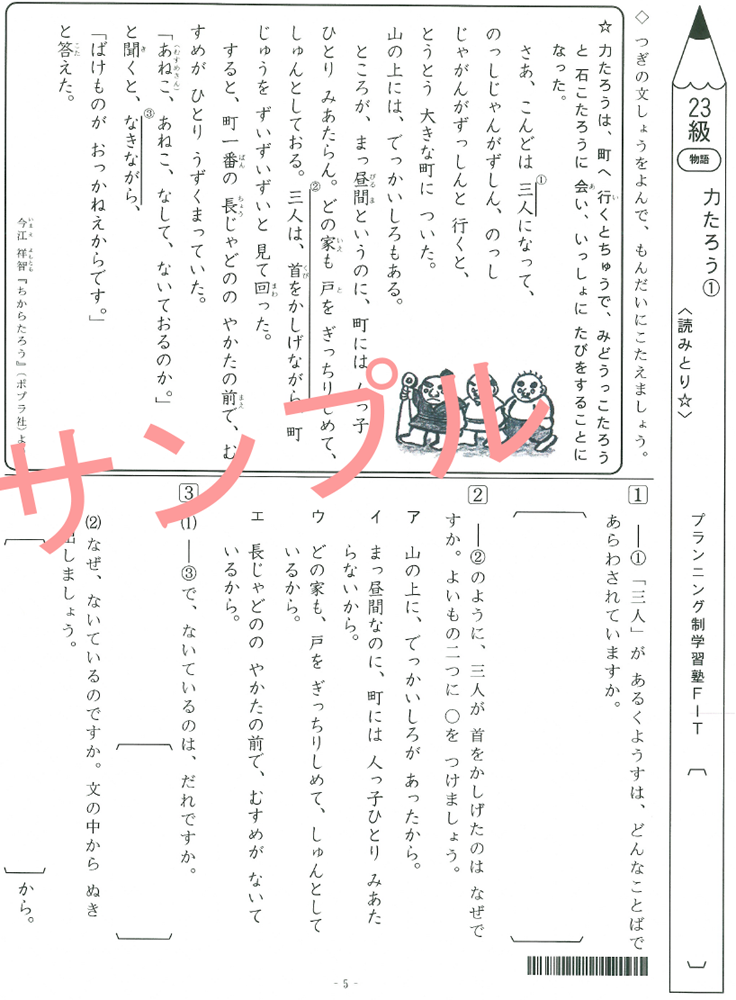 23級
物語
力たろう①
〈読みとり☆〉
プランニング制学習塾FIT
◇ つぎの文しょうをよんで、もんだいにこたえましょう。
☆ 力たろうは、町へ行くとちゅうで、みどうっこたろう
と 石こたろうに 会い、いっしょに たびをすることに
なった。
さあ、こんどは 三人になって、
のっしじゃんがずしん、のっし
じゃがんがずっしんと 行くと、
とうとう 大きな町に ついた。
山の上には、でっかいしろもある。
ところが、まっ昼間というのに、町には 人っ子
ひとり みあたらん。どの家も 戸を ぎっちりしめて、
しゅんとしておる。三人は、首をかしげながら 町
じゅうを ずいずいずいと 見て回った。
すると、町一番の 長じゃどのの やかたの前で、む
すめが ひとり うずくまっていた。
「あねこ、あねこ、なして、ないておるのか。」
と聞くと、なきながら、
「ばけものが おっかねえからです。」
と答えた。
今江 祥智『ちからたろう』(ポプラ社)よ
サンプル
1 ―①「三人」が あるくようすは、どんなことばで
あらわされていますか。
2 ―②のように、三人が 首をかしげたのは なぜで
すか。よいもの二つに ○を つけましょう。
ア 山の上に、でっかいしろが あったから。
イ まっ昼間なのに、町には 人っ子ひとり みあた
らないから。
ウ どの家も、戸を ぎっちりしめて、しゅんとして
いるから。
エ 長じゃどのの やかたの前で、むすめが ないて
いるから。
3 (1) ―③で、ないているのは、だれですか。
(2) なぜ、ないているのですか。文の中から ぬき
出しましょう。
から。
- 5 -